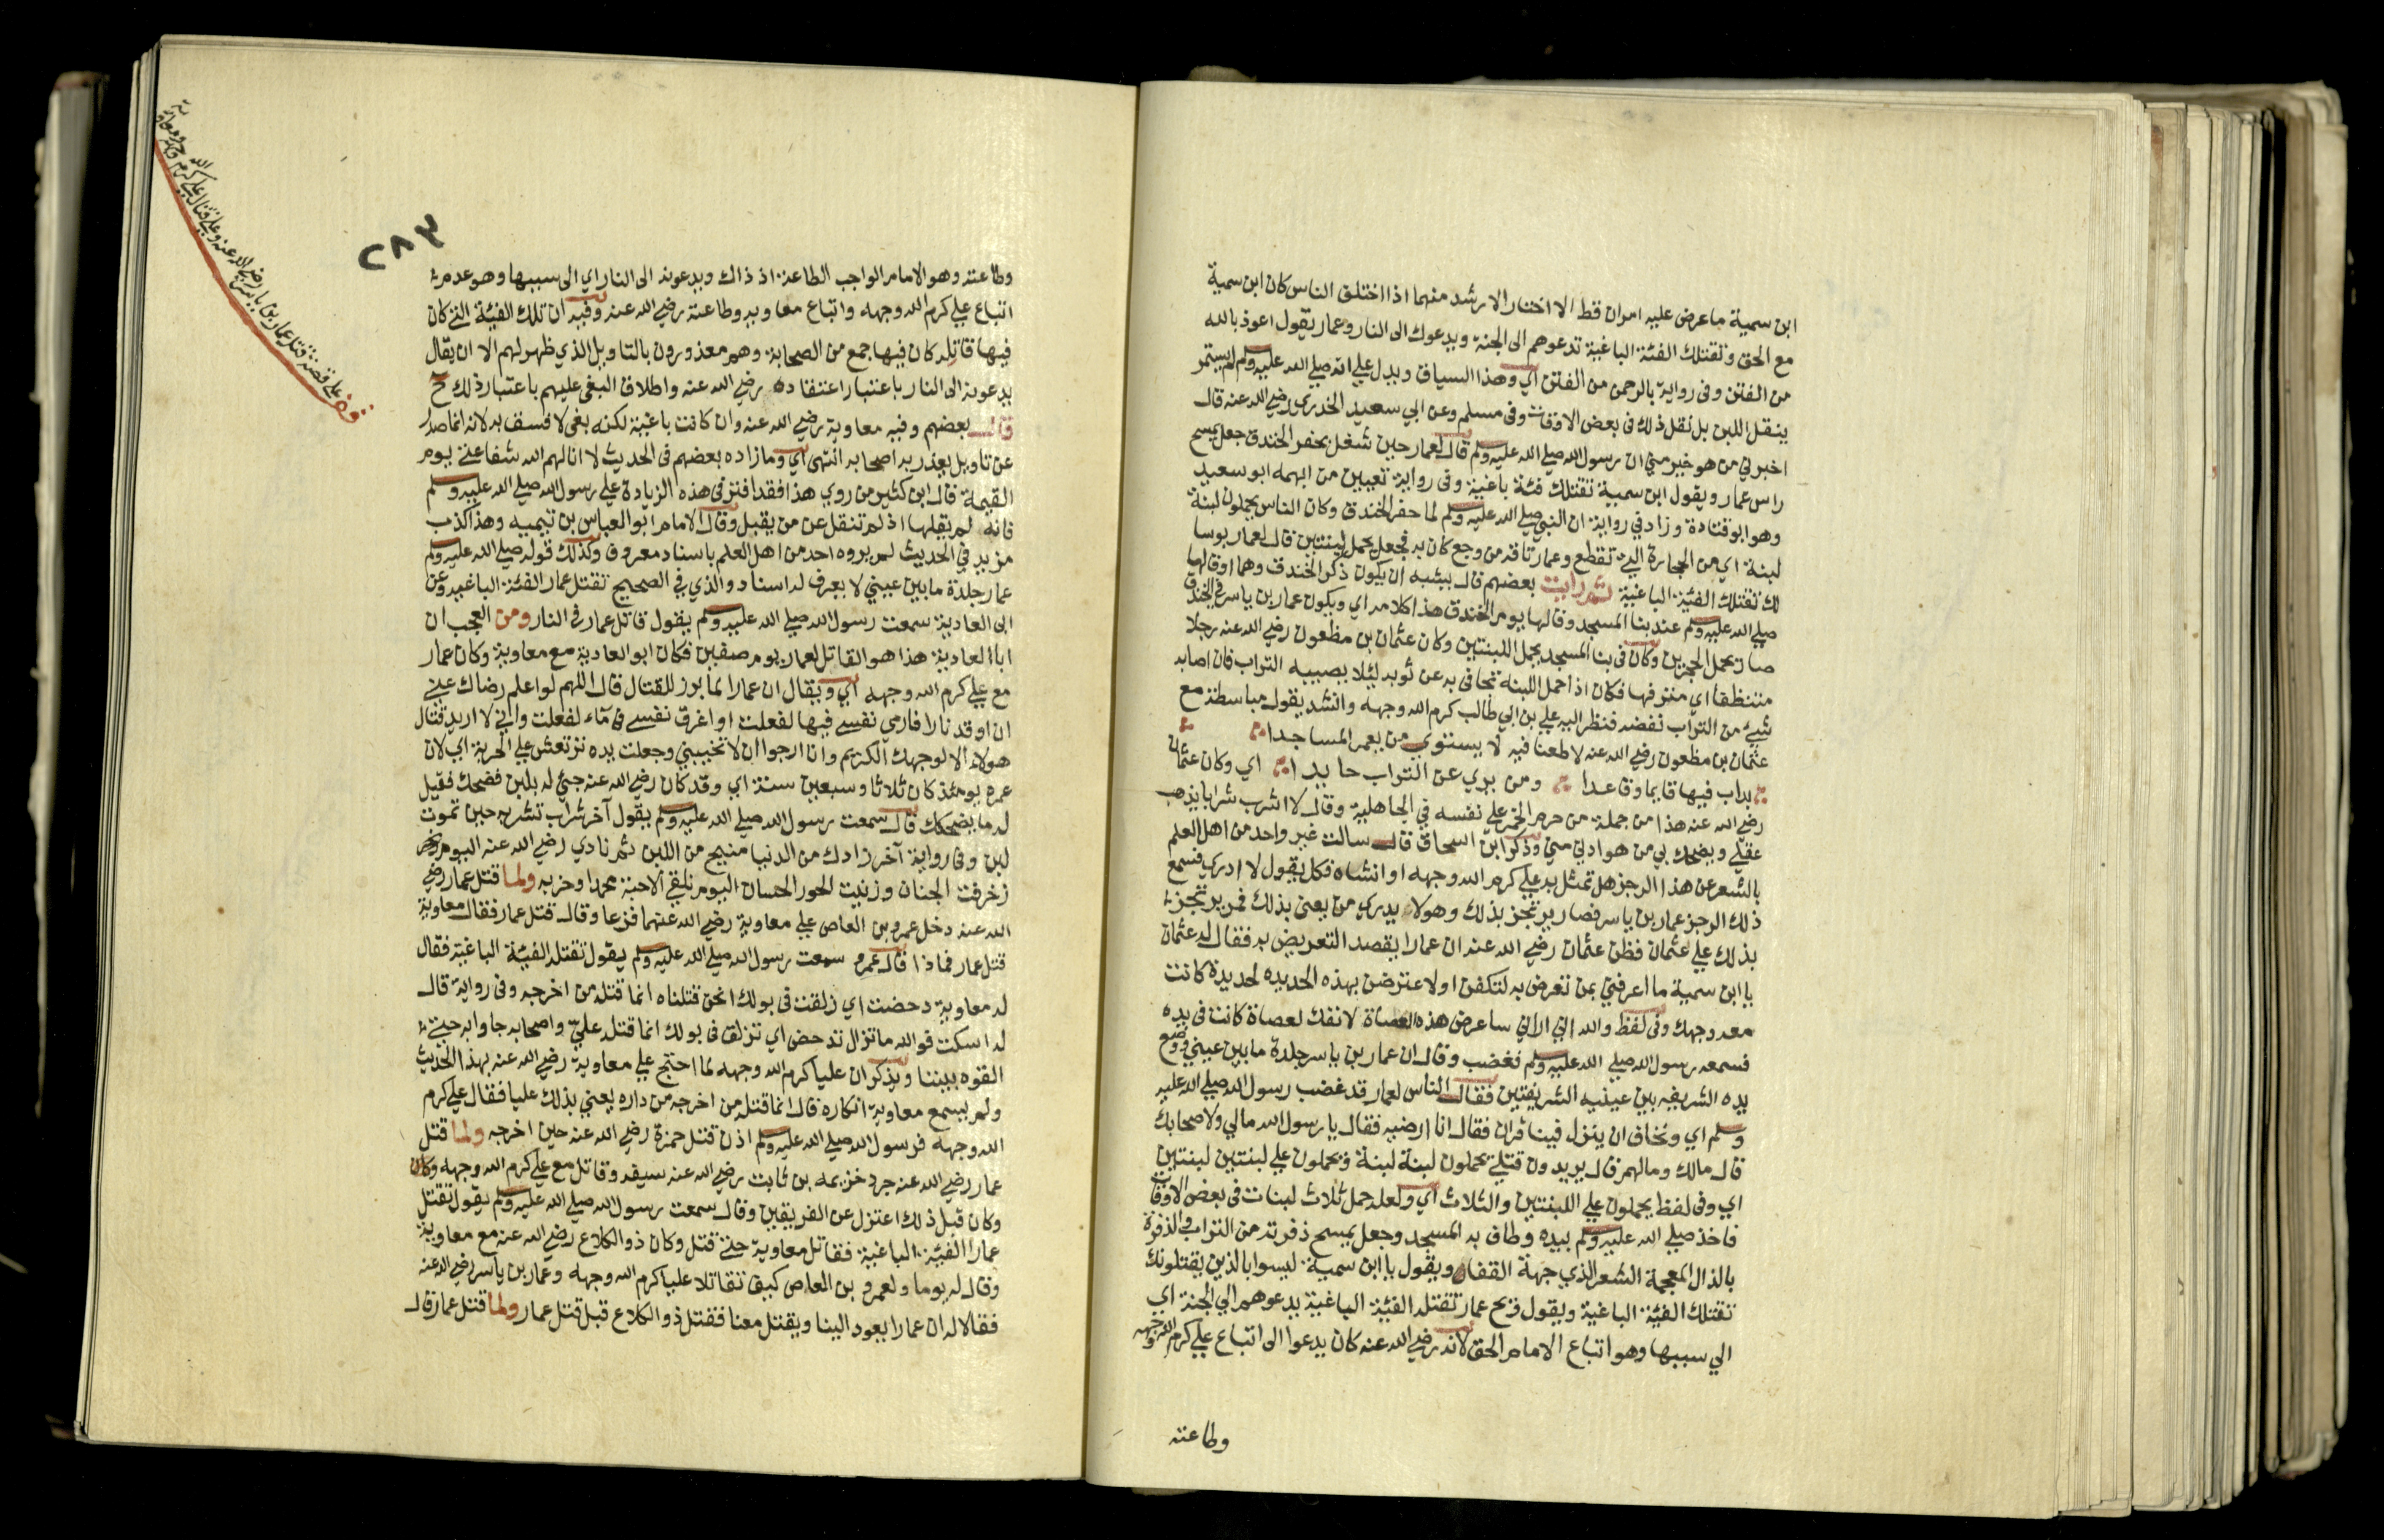 ابن سمية ما عرض عليه امران قط الا اختار الارشد منهما اذا اختلق الناس كان ابن سمية
مع الحق وتقتلك الفئة الباغية تدعوهم الى الجنة ويدعوك الى النار وعمار يقول اعوذ بالله
من الفتن وفى رواية بالرحمن من الفتن اي وهذا السياق ويدل على انه صلى الله عليه وسلم لم يستمر
ينقل اللبن بل نقل ذلك فى بعض الاوقات وفى مسلم وعن ابي سعيد الخدري رضي الله عنه قال
اخبرني من هو خير مني ان رسول الله صلى الله عليه وسلم قال لعمار حين شغل بحفر الخندق جعل يمسح
راس عمار ويقول ابن سمية تقتلك فئة باغية وفى رواية تعيين من ابهمه ابو سعيد
وهو ابو قتادة وزاد في رواية ان النبي صلى الله عليه وسلم لما حفر الخندق وكان الناس يحملون لبنة
لبنة اي من الحجارة التي تقطع وعمار ناقه من وجع كان به فجعل يحمل لبنتين قال لعمار بوسا
لك تقتلك الفئة الباغية ثم رايت بعضهم قال يشبه ان يكون ذكر الخندق وهما او قالها
صلى الله عليه وسلم عند بنا المسجد وقالها يوم الخندق هذا كلامه اي ويكون عمار بن ياسر في الخندق
صار يحمل الحجرين وكان فى بنا المسجد يحمل اللبنتين وكان عثمان بن مظعون رضي الله عنه رجلا
متنظفا اي مترفها فكان اذا حمل اللبنة تجافى به عن ثوبه ليلا يصيبه التراب فان اصابه
شيئ من التراب نفضه فنظر اليه علي بن ابي طالب كرم الله وجهه وانشد يقول مباسطة مع
عثمان بن مظعون رضي الله عنه لا طعنا فيه لا يستوي من يعمر المساجدا
يداب فيها قايما وقاعدا ومن يري عن التراب حايدا اي وكان عثمان
رضي الله عنه هذا من جملة من حرم الخمر على نفسه في الجاهلية وقال لا اشرب شرابا يذهب
عقلي ويضحك بي من هو ادنى مني وذكر ابن اسحاق قال سالت غير واحد من اهل العلم
بالشعر عن هذا الرجز هل تمثل به علي كرم الله وجهه او انشاه فكل يقول لا ادري فسمع
ذلك الرجز عمار بن ياسر فصار يرتجز بذلك وهو لا يدري من يعنى بذلك فمر يرتجز
بذلك على عثمان فظن عثمان رضي الله عنه ان عمارا يقصد التعريض به فقال له عثمان
يا ابن سمية ما اعرفني بمن تعرض به لتكفن او لاعترضن بهذه الحديده لحديدة كانت
معه وجهك وفى لفظ والله اني الاني ساعرض هذه العصاة لانفك لعصاة كانت فى يده
فسمعه رسول الله صلى الله عليه وسلم فغضب وقال ان عمار بن ياسر جلدة ما بين عيني ووضع
يده الشريفه بين عينيه الشريفتين فقال الناس لعمار قد غضب رسول الله صلى الله عليه
وسلم اي ونخاف ان ينزل فينا قران فقال انا ارضيه فقال يا رسول الله مالي ولاصحابك
قال مالك ومالهم قال يريدون قتلي يحملون لبنة لبنة ويحملون علي لبنتين لبنتين
اي وفى لفظ يحملون علي اللبنتين والثلاث اي ولعله حمل ثلاث لبنات فى بعض الاوقات
فاخذ صلى الله عليه وسلم بيده وطاف به المسجد وجعل يمسح ذفرته من التراب والذفرة
بالذال المعجمة الشعر الذي جهة القفا ويقول يا ابن سمية ليسوا بالذين يقتلونك
تقتلك الفئة الباغية ويقول ويح عمار تقتله الفئة الباغية يدعوهم الي الجنة اي
الي سببها وهو اتباع الامام الحق لانه رضي الله عنه كان يدعوا الى اتباع علي كرم الله وجهه
وطاعته
٢٨٣
قف على قصة قتل عمار بن ياسر رضي الله عنه وعلى قتال علي كرم الله وجهه ومعاوية
وطاعته وهو الامام الواجب الطاعة اذ ذاك ويدعونه الى النار اي الى سببها وهو عدم
اتباع علي كرم الله وجهه واتباع معاويه وطاعته رضي الله عنه وفيه ان تلك الفيئة التي كان
فيها قاتله كان فيها جمع من الصحابة وهم معذورون بالتاويل الذي ظهر لهم الا ان يقال
يدعونه الى النار باعتبار اعتقاده رضي الله عنه واطلاق البغى عليهم باعتبار ذلك
قال بعضهم وفيه معاوية رضي الله عنه وان كانت باغية لكنه بغى لا فسق به لانه انما صدر
عن تاويل يعذر به اصحابه انتهى اي وما زاده بعضهم فى الحديث لا انالهم الله شفاعتي يوم
القيمة قال ابن كثير من روي هذا فقد افترى هذه الزيادة علي رسول الله صلى الله عليه وسلم
فانه لم يقلها اذ لم تنقل عن من يقبل وقال الامام ابو العباس بن تيميه وهذا كذب
مزيد في الحديث لم يروه احد من اهل العلم باسناد معروف وكذلك قوله صلى الله عليه وسلم
عمار جلدة ما بين عيني لا يعرف له اسناد والذي في الصحيح تقتل عمار الفئة الباغيه وعن
ابى العادية سمعت رسول الله صلى الله عليه وسلم يقول قاتل عمار في النار ومن العجب ان
ابا العادية هذا هو القاتل لعمار يوم صفين فكان ابو العاديه مع معاوية وكان عمار
مع علي كرم الله وجهه اي ويقال ان عمارا لما برز للقتال قال اللهم لو اعلم رضاك عني
ان اوقد نارا فارمي نفسي فيها لفعلت او اغرق نفسي فى ماء لفعلت واني لا اريد قتال
هولاء الا لوجهك الكريم وانا ارجوا ان لا تخيبني وجعلت يده ترتعش على الحربة اي لان
عمره يومئذ كان ثلاثا وسبعين سنة اي وقد كان رضي الله عنه جيئ له بلبن فضحك فقيل
له ما يضحكك قال سمعت رسول الله صلى الله عليه وسلم يقول آخر شراب تشربه حين تموت
لبن وفى رواية آخر زادك من الدنيا منيح من اللبن ثم نادي رضي الله عنه اليوم
زخرفت الجنان وزينت الحور الحسان اليوم نلقي الاحبة محمدا وحزبه ولما قتل عمار رضي
الله عنه دخل عمرو بن العاص على معاوية رضي الله عنهما فزعا وقال قتل عمار فقال معاوية
قتل عمار فماذا قال عمرو سمعت رسول الله صلى الله عليه وسلم يقول تقتله الفيئة الباغية فقال
له معاوية دحضت اي زلقت فى بولك انحن قتلناه انما قتله من اخرجه وفى رواية قال
له اسكت فوالله ما تزال تدحض اي تزلق فى بولك انما قتله علي واصحابه جاوا به حتى
القوه بيننا ويذكر ان عليا كرم الله وجهه لما احتج علي معاوية رضي الله عنه بهذا الحديث
ولم يسمع معاوية انكاره قال انما قتله من اخرجه من داره يعني بذلك عليا فقال علي كرم
الله وجهه فرسول الله صلى الله عليه وسلم اذن قتل حمزة رضي الله عنه حين اخرجه ولما قتل
عمار رضي الله عنه جرد خزيمه بن ثابت رضي الله عنه سيفه وقاتل مع علي كرم الله وجهه وكان
وكان قبل ذلك اعتزل عن الفريقين وقال سمعت رسول الله صلى الله عليه وسلم يقول تقتل
عمارا الفيئة الباغية فقاتل معاوية حتى قتل وكان ذو الكلاع رضي الله عنه مع معاوية
وقال له يوما ولعمرو بن العاص كيف نقاتلا عليا كرم الله وجهه وعمار بن ياسر رضي الله عنه
فقالا له ان عمارا يعود الينا ويقتل معنا فقتل ذو الكلاع قبل قتل عمار ولما قتل عمار قال